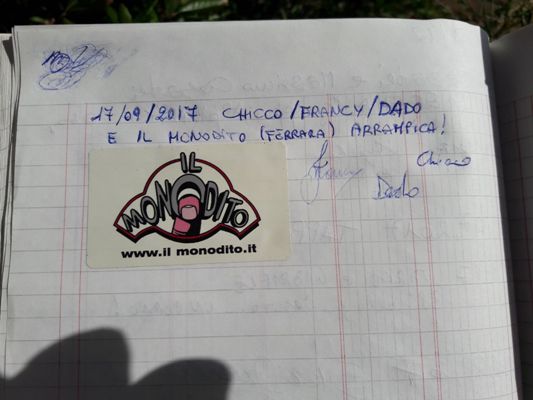 17/09/2017 CHICCO/FRANCY/DADO
E IL MONODITO (FERRARA) ARRAMPICA!
Francy
Chicco
Dado
IL
MONODITO
www.il monodito.it